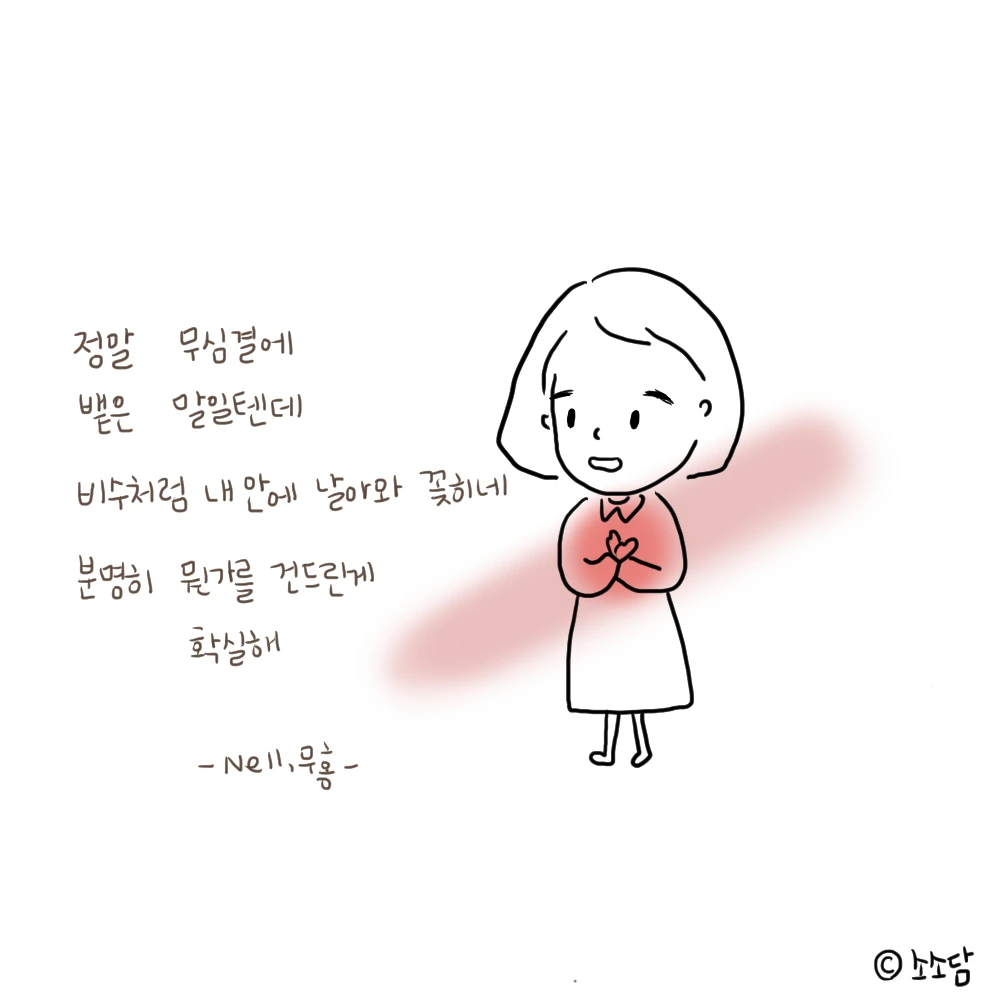 정말 무심결에
뱉은 말일텐데
비수처럼 내 안에 날아와 꽂히네
분명히 뭔가를 건드린게
확실해
- Nell, 무홍 -
© 소소담